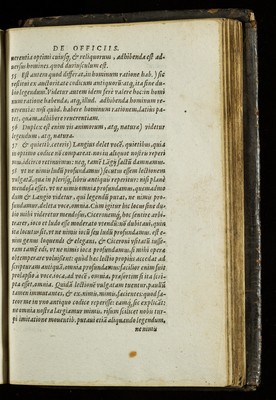 DE OFFICIIS.
uerentia optimi cuiusq, & reliquorum, adhibenda est ad-
uersus homines, quod durissculum est.
55 Est autem quod differat, in hominum ratione hab.) sic
restitui ex auctoritate codicum antiquorū. atq; ita sine du-
bio legendum. Videtur autem idem ferè valere hæc in homi
num ratione habenda, atq; illud, adhibenda hominum re-
uerentia: nisi quod habere hominum rationem, latius pa-
tet, quàm adhibere reuerentiam.
56 Duplex est enim vis animorum, atq; natura) videtur
legendum, atq; natura.
57 & quietis, ceteris) Langius delet vocē, quietibus, quia
in optimo codice nō compareat. nos in aliquot nostris reperi
mus, ideoq; retinuimus: neq; tamē Lāgij factū damnamus.
58 vt ne nimis ludū profundamus) secutus essem lectionem
vulgatā, qua in plerisq; libris antiquis reperitur: nisi planè
mendosa esset, vt ne nimis omnia profundamus, quemadmo
dum & Langio videtur, qui legendū putat, ne nimis pro-
fundamus: deleta voce, omnia. Cùm igitur hic locus sine du-
bio mihi videretur mendosus, Ciceronemq; hoc sentire arbi-
trarer, ioco et ludo esse moderatè vtendū: nō dubitaui, quin
ita locutus sit, vt ne nimis iocū seu ludū profundamus. est e-
nim genus loquendi & elegans, & Ciceroni vsitatū. iusse-
ram tamē edi, vt ne nimis ioca profundamus, si mihi operæ
obtemperare voluissent: quòd hæc lectio propius accedat ad
scripturam antiquā, omnia profundamus: faciliùs enim fuit
prolapsio a voce, ioca, ad vocē, omnia, præsertim si ita scri-
pta esset, omīa. Quidā lectionē vulgatam tuentur, paulū
tamen immutantes, & ex, nimis, mimis, facientes: quod fa-
teor me in vno antiquo codice reperisse: eamq; sic explicāt:
ne omnia nostra largiamur mimis, risum scilicet nobis tur-
pi imitatione mouentib. putaui etiā aliquando legendum,
ne nimiū